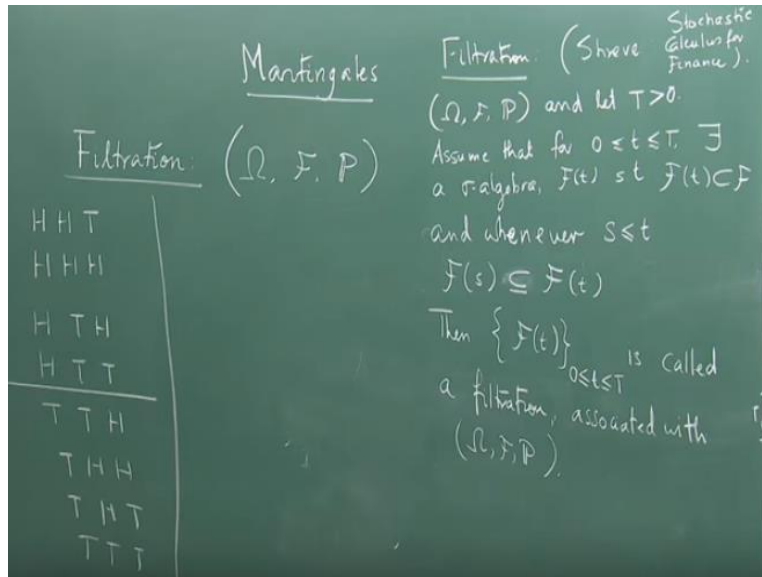 Martingales
Filtration: (Ω, F, P)
H H T
H H H
H T H
H T T
T T H
T H H
T H T
T T T
Filtration: (Shreve Stochastic
Calculus for
Finance).
(Ω, F, P) and let T>0.
Assume that for 0≤t≤T, ∃
a σ-algebra, F(t) s t F(t)⊂F
and whenever s≤t
F(s) ⊆ F(t)
Then {F(t)}0≤t≤T is called
a filtration, associated with
(Ω, F, P).